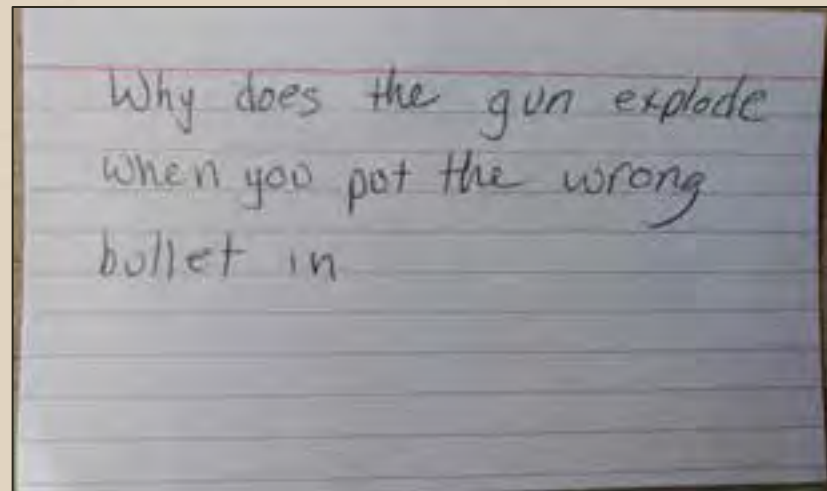 Why does the gun explode
when you put the wrong
bullet in